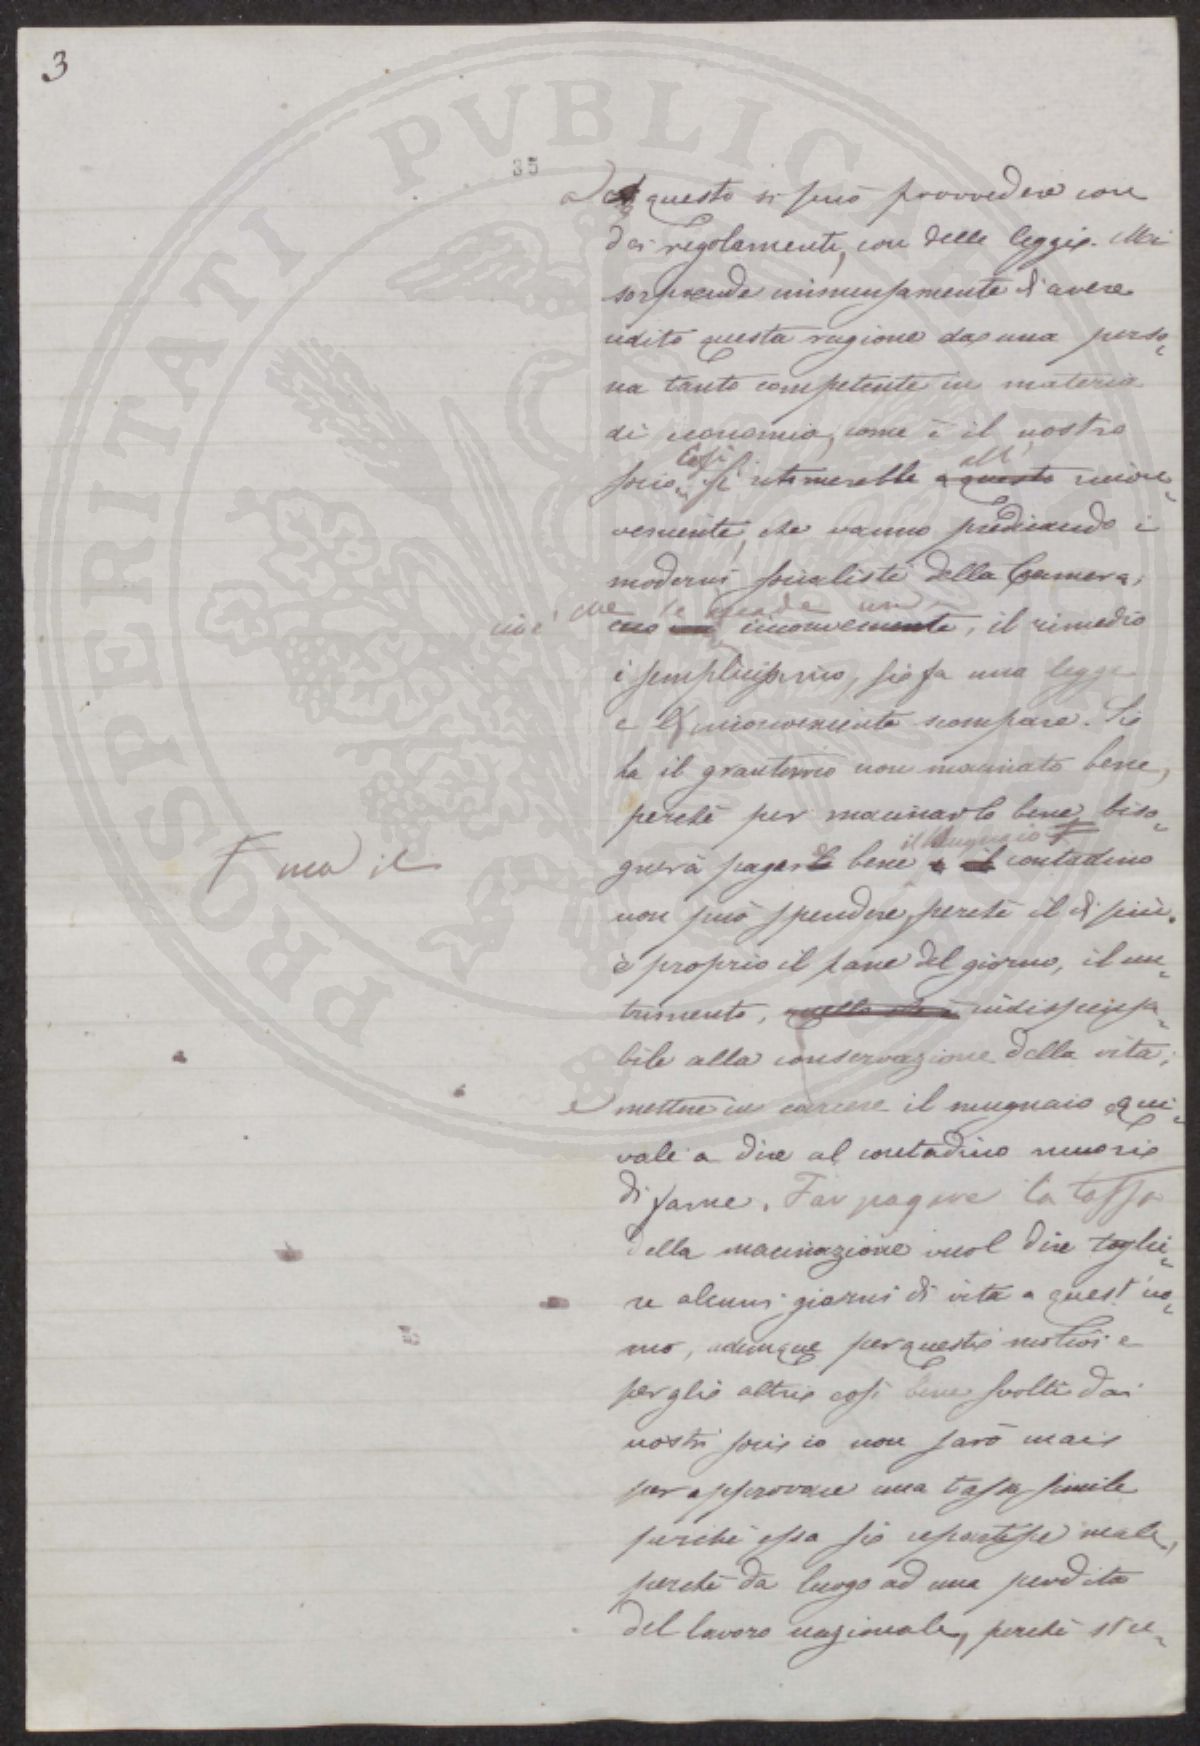 3
35
PROSPERITATI PVBLICAE
a questo si può provvedere con
dei regolamenti, con delle leggi. Mi
sorprende immensamente d'avere
udito questa ragione da una perso-
na tanto competente in materia
di economia, come è il nostro
socio. Così si ritornerebbe all' incon-
veniente, che vanno predicando i
moderni socialisti della Camera,
cioè che se accade un inconveniente, il rimedio
è semplicissimo, si fa una legge
e l'inconveniente scompare. Si
ha il granturco non macinato bene,
perchè per macinarlo bene biso-
gnerà pagar bene il mugnaio F contadino
F ma il
non può spendere, perchè il di più
è proprio il pane del giorno, il nu-
trimento, quello che è indispensa-
bile alla conservazione della vita;
e mettere in carcere il mugnaio equi-
vale a dire al contadino muori
di fame. Far pagare la tassa
della macinazione vuol dire toglie-
re alcuni giorni di vita a quest'uo-
mo, adunque per questi motivi e
per gli altri così bene svolti dai
nostri soci io non sarò mai
per approvare una tassa simile
perchè essa si ripartisce male,
perchè dà luogo ad una perdita
del lavoro nazionale, perchè